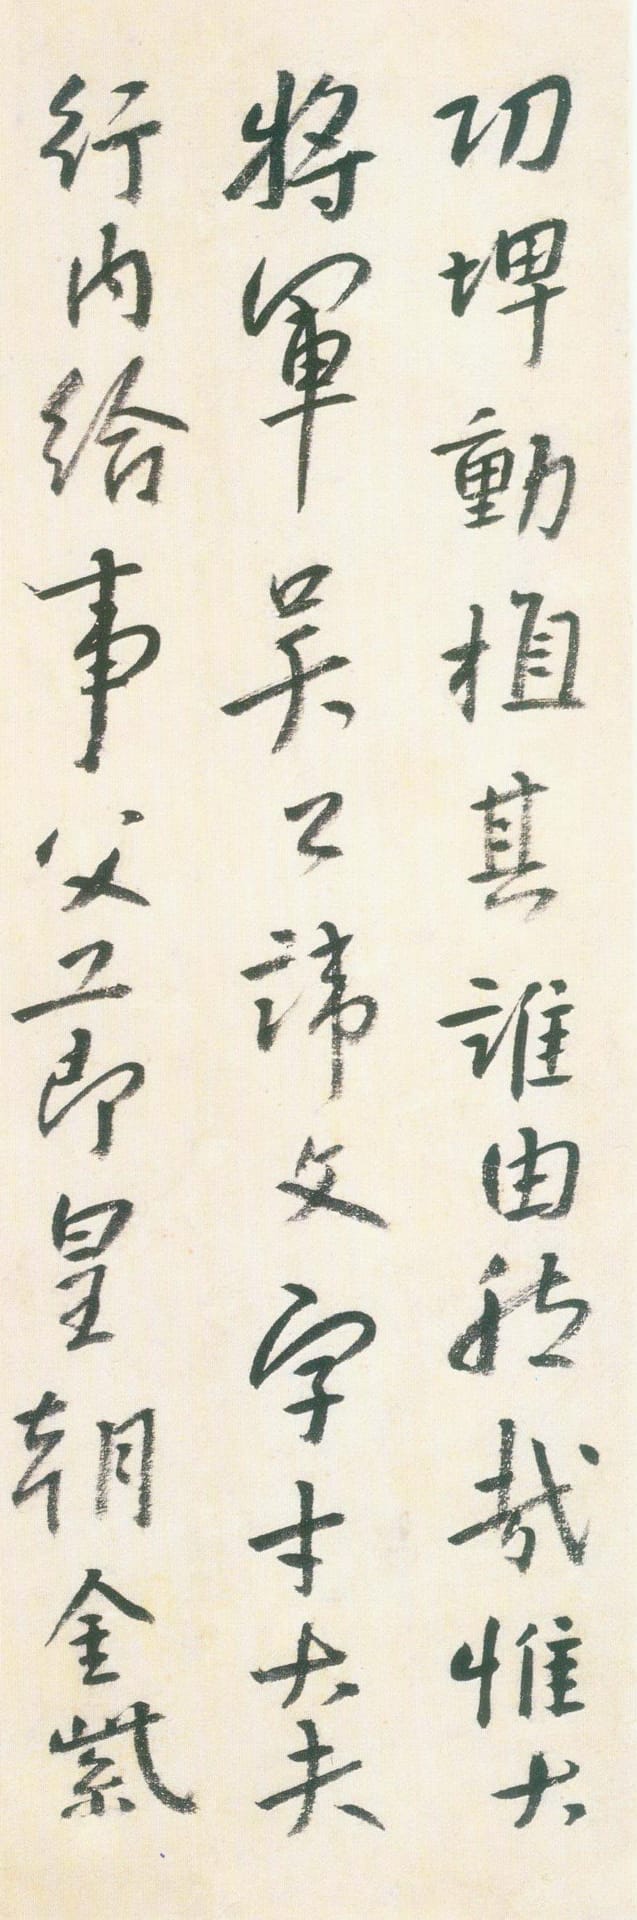 功埤動植其誰由能哉惟大
將軍吴公諱文字才大夫
行内給事父工即皇朝金紫